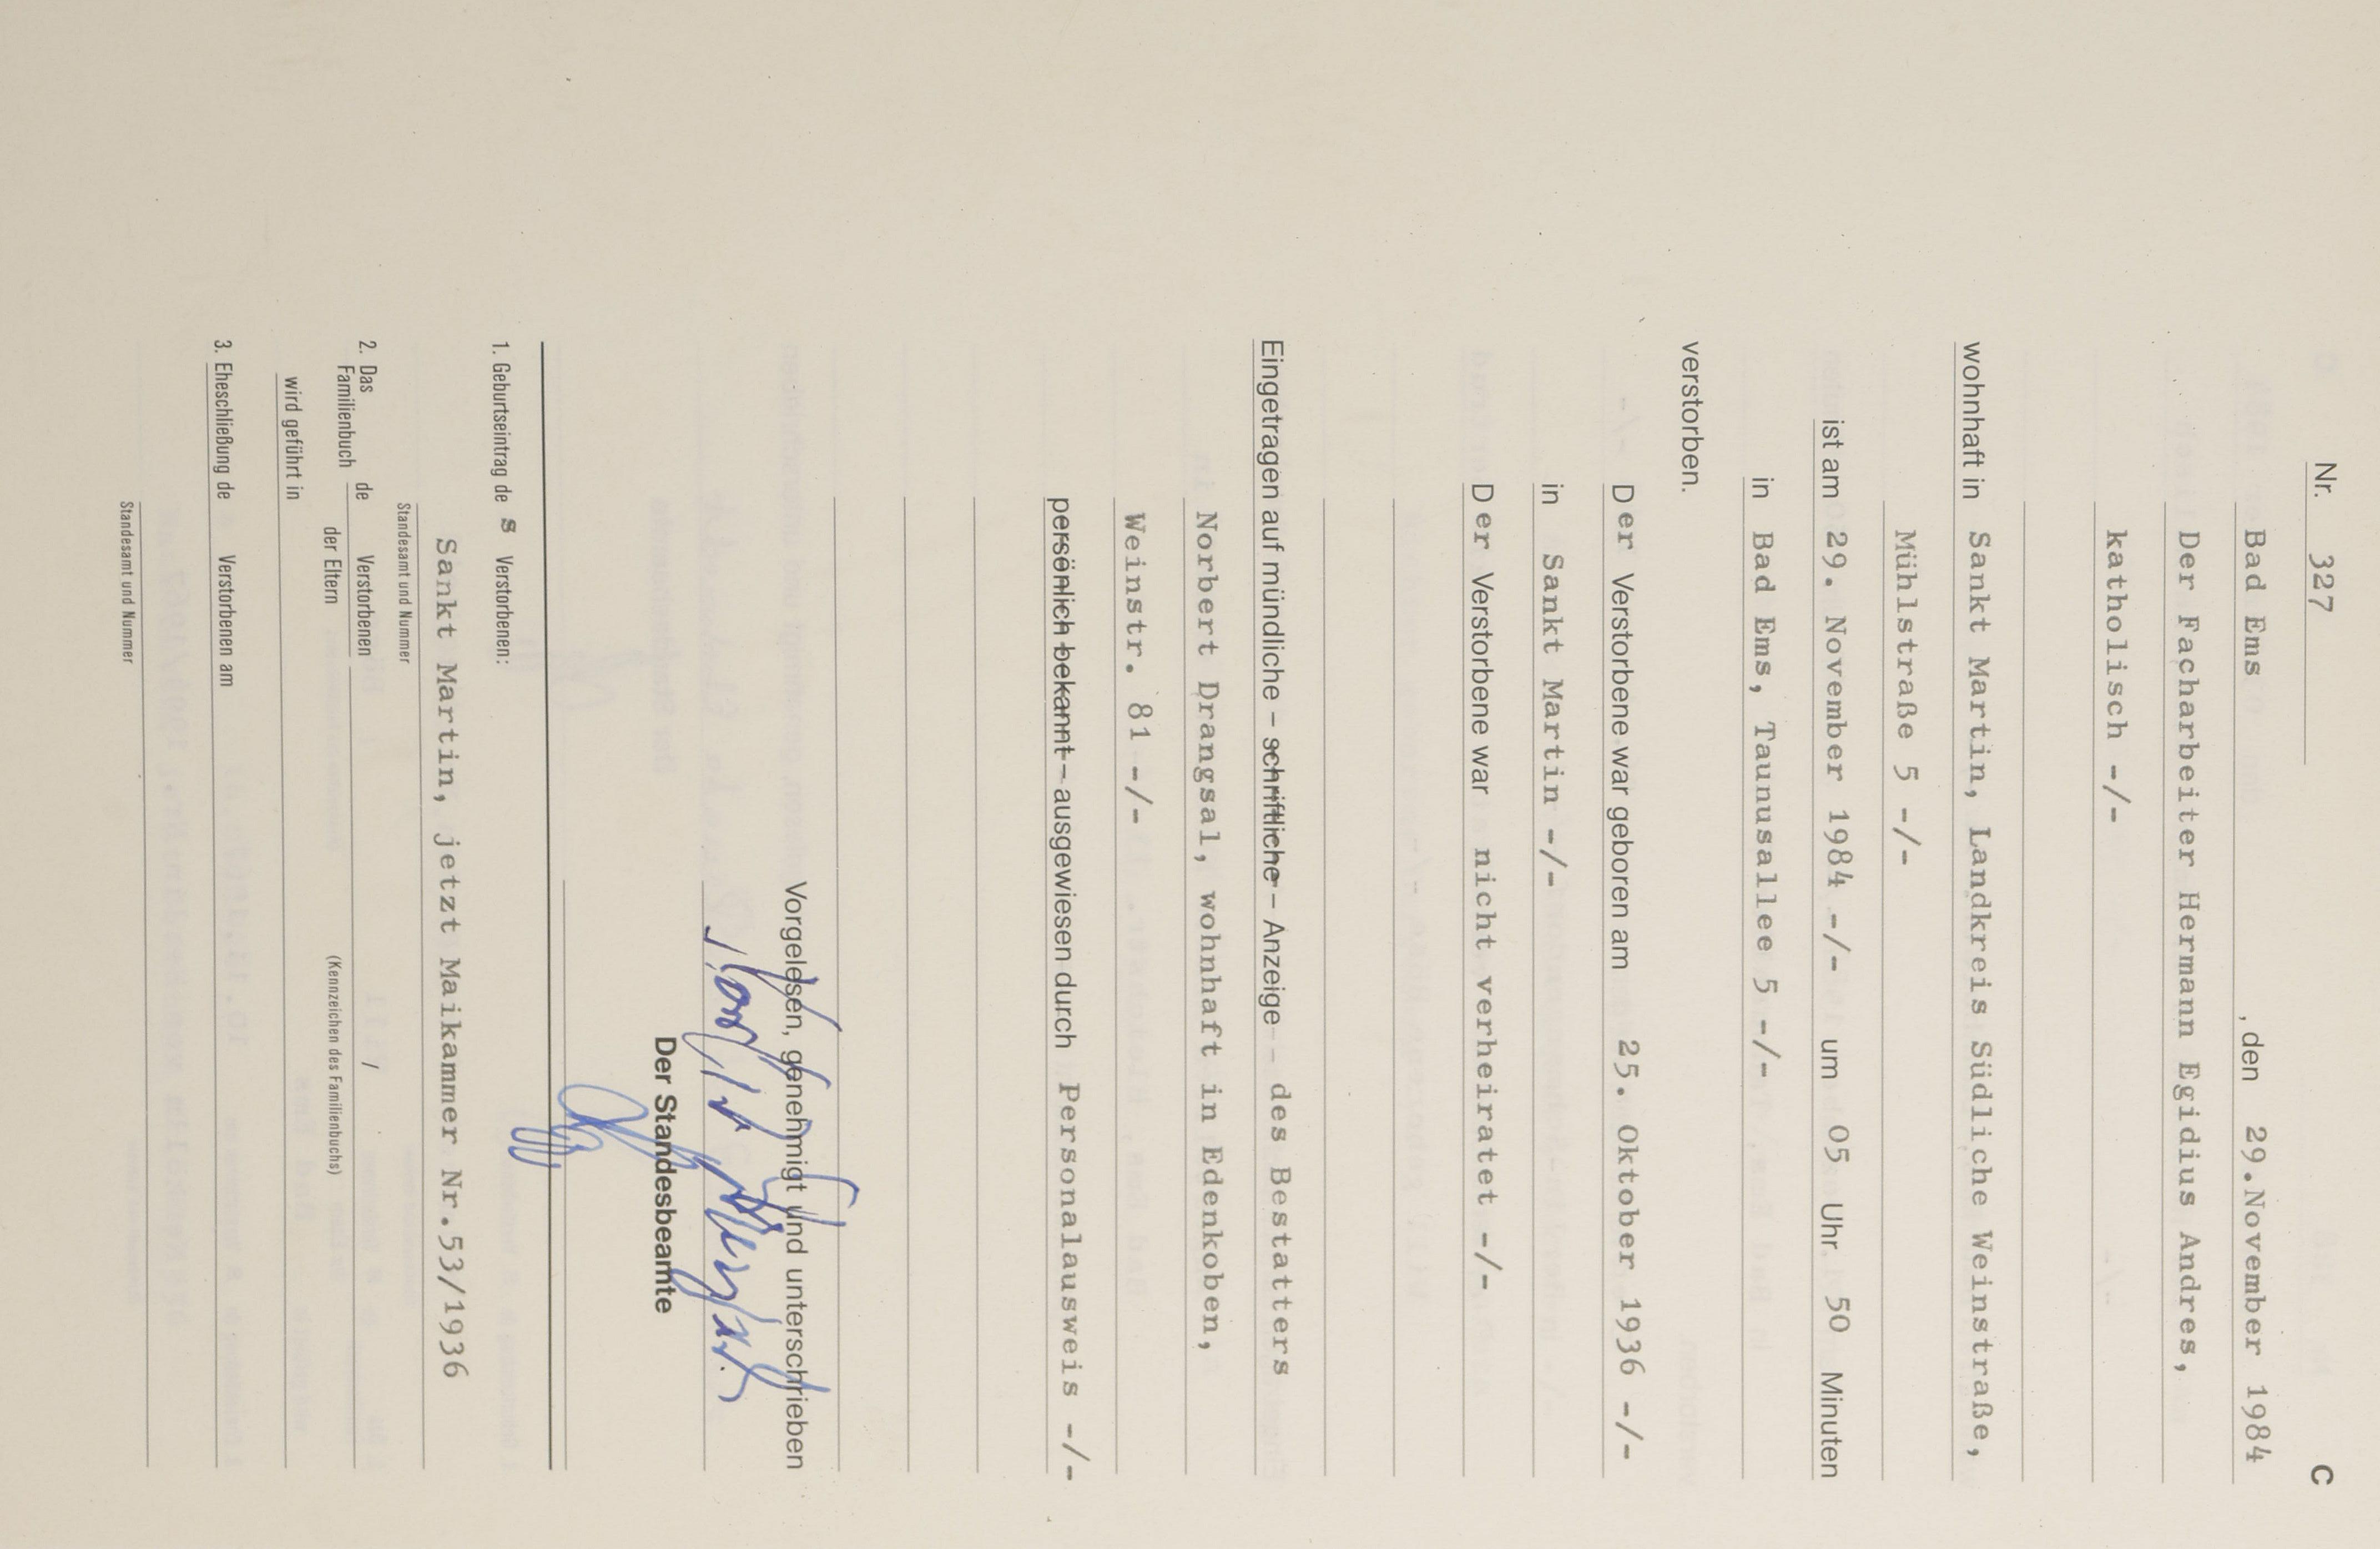 Nr. 327 C
Bad Ems , den 29.November 1984
Der Facharbeiter Hermann Egidius Andres,
katholisch -/-
wohnhaft in Sankt Martin, Landkreis Südliche Weinstraße,
Mühlstraße 5 -/-
ist am 29. November 1984 -/- um 05 Uhr 50 Minuten
in Bad Ems, Taunusallee 5 -/-
verstorben.
Der Verstorbene war geboren am 25. Oktober 1936 -/-
in Sankt Martin -/-
Der Verstorbene war nicht verheiratet -/-
Eingetragen auf mündliche – schriftliche – Anzeige – des Bestatters
Norbert Drangsal, wohnhaft in Edenkoben,
Weinstr. 81 -/-
persönlich bekannt – ausgewiesen durch Personalausweis -/-
Vorgelesen, genehmigt und unterschrieben
Der Standesbeamte
1. Geburtseintrag de s Verstorbenen:
Sankt Martin, jetzt Maikammer Nr.53/1936
Standesamt und Nummer
2. Das Familienbuch de Verstorbenen /
der Eltern (Kennzeichen des Familienbuchs)
wird geführt in
3. Eheschließung de Verstorbenen am
Standesamt und Nummer